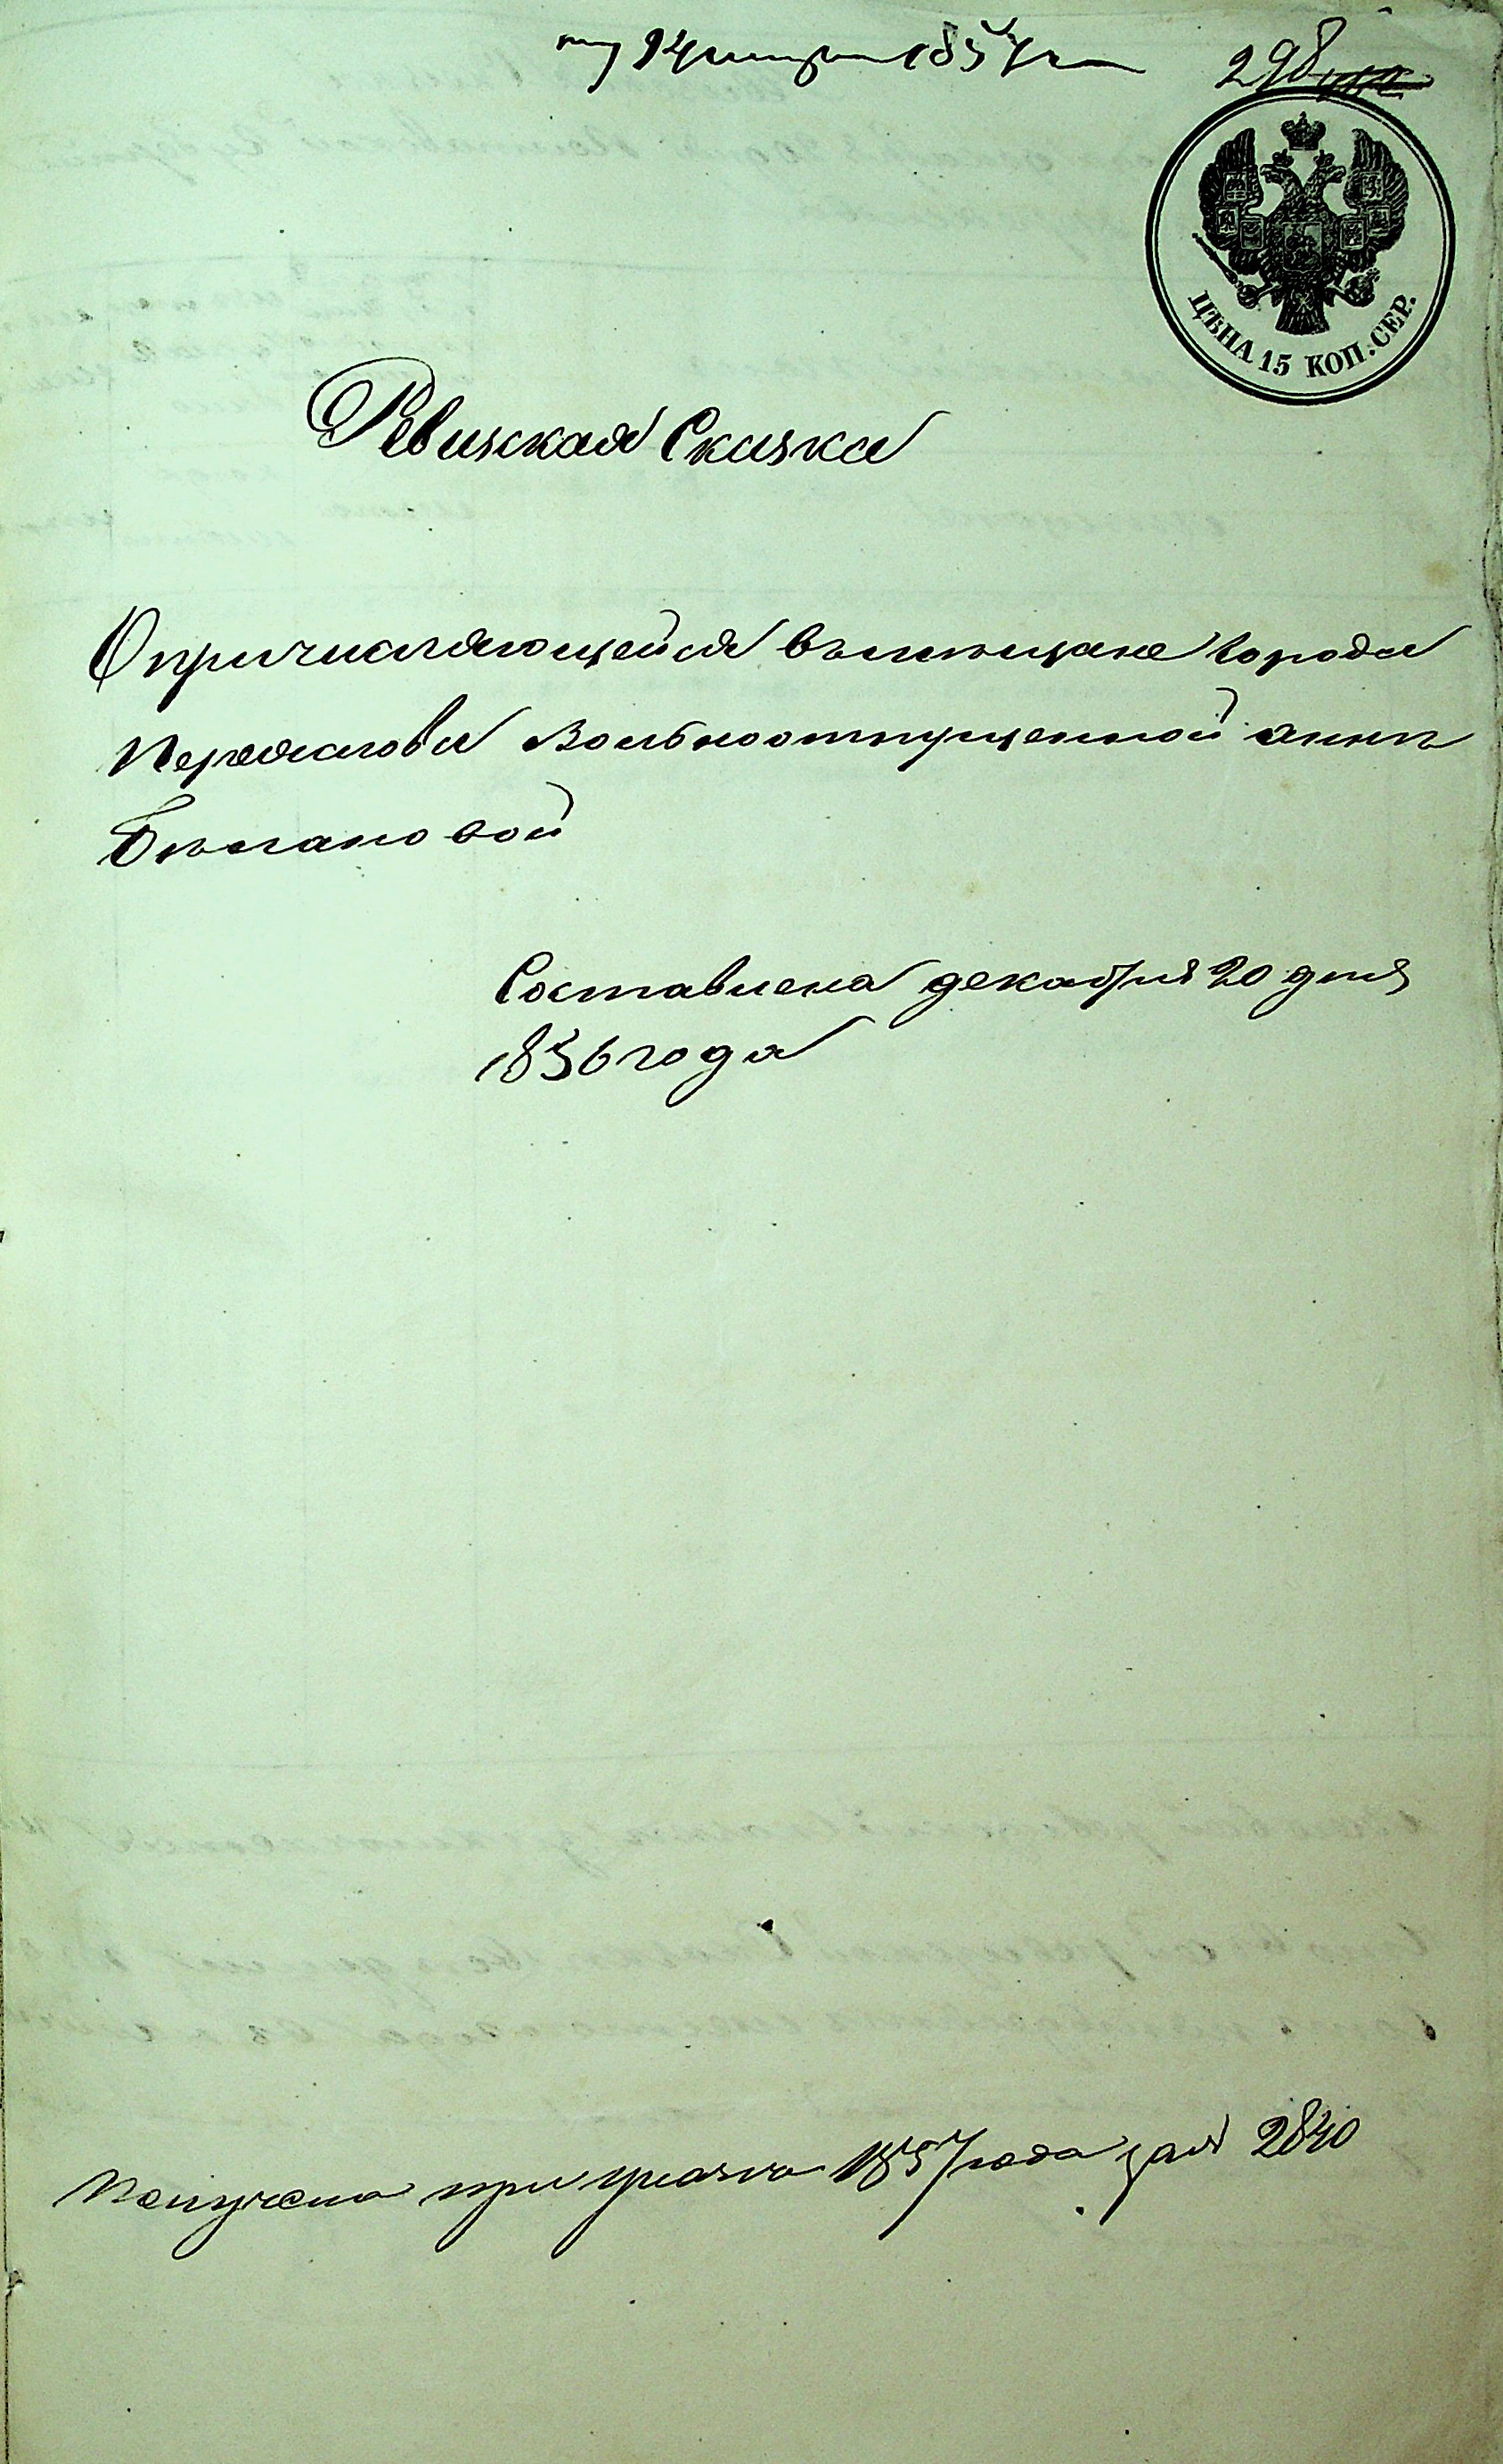 298
ЦѢНА 15 КОП. СЕР.
Ревизская Сказка
О причисляющейся въ мещане города
Переяслова Вольноотпущенной анне
Беклановой
Составлена декабря 20 дня
1856 года
Получена при указе 1857 года за № 2840